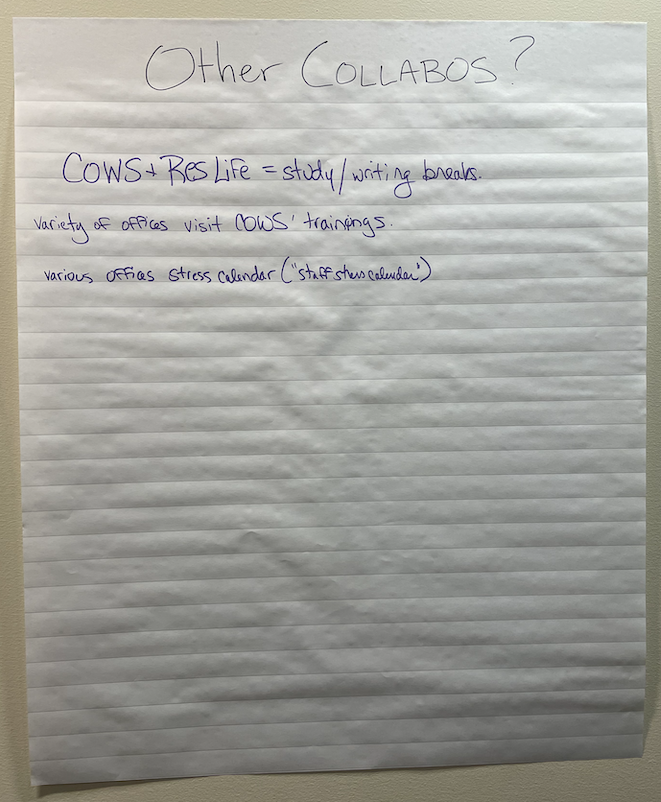 Other COLLABOS?
COWS + Res Life = study/writing breaks.
Variety of offices visit COWS' trainings.
various offices stress calendar ("staff stress calendar")